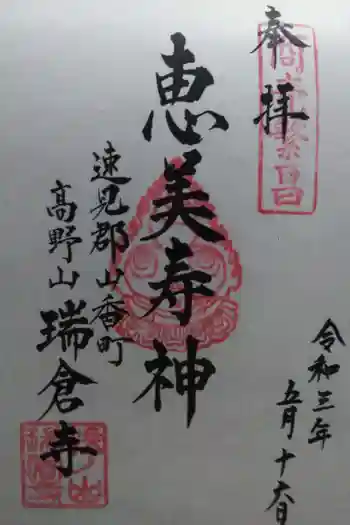 奉拝
商売繁昌
令和三年
五月十六日
恵美寿神
速見郡山香町
高野山
瑞倉寺